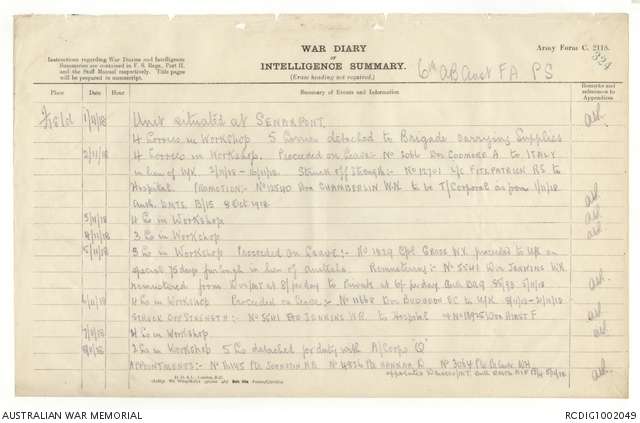 WAR DIARY
OR
INTELLIGENCE SUMMARY.
(Erase heading not required.)
Army Form C. 2118.
Instructions regarding War Diaries and Intelligence
Summaries are contained in F. S. Regs., Part II.
and the Staff Manual respectively. Title pages
will be prepared in manuscript.
6th AB Aust FA PS
Place Date Hour Summary of Events and Information Remarks and references to Appendices
Field 1/11/18 Unit situated at SENARPONT.
4 Lorries in Workshop 5 Lorries detached to Brigade carrying Supplies
2/11/18 4 Lorries in Workshop. Proceeded on Leave:- No 3066 Dvr CUDMORE A. to ITALY
in lieu of U/K 2/11/18 - 16/11/18. Struck off Strength:- No 12701 L/C FITZPATRICK R.S. to
Hospital. PROMOTION:- No 12540 Dvr CHAMBERLIN W.R. to be T/Corporal as from 1/11/18
Auth. DMTS 13/15 8 Oct 1918.
3/11/18 4 Lo in Workshop
4/11/18 3 Lo in Workshop
5/11/18 3 Lo in Workshop Proceeded on Leave:- No 1829 Cpl GROSS W.X. proceeded to U/K on
special 75 days furlough in lieu of Australia. Remustering:- No 5541 Dvr JENKINS W.R.
remustered from Dvr/MT at 8/- per day to Private at 6/- per day Auth DAG 5/11/18
6/11/18 4 Lo in Workshop Proceeded on Leave:- No 11668 Dvr S.C. to U/K. 8/11/18 - 22/11/18
STRUCK OFF STRENGTH:- No 5541 Pte JENKINS W.R. to Hospital No 13925 Dvr HIRST F
7/11/18 4 Lo in Workshop
8/11/18 2 Lo in Workshop 5 Lo detached for duty with A/Corps 'Q'
APPOINTMENTS:- Johnston No 4836 Pte HANNAH No 3064 Pte W.H
appointed Drivers/MT. Auth
AUSTRALIAN WAR MEMORIAL
RCDIG1002049